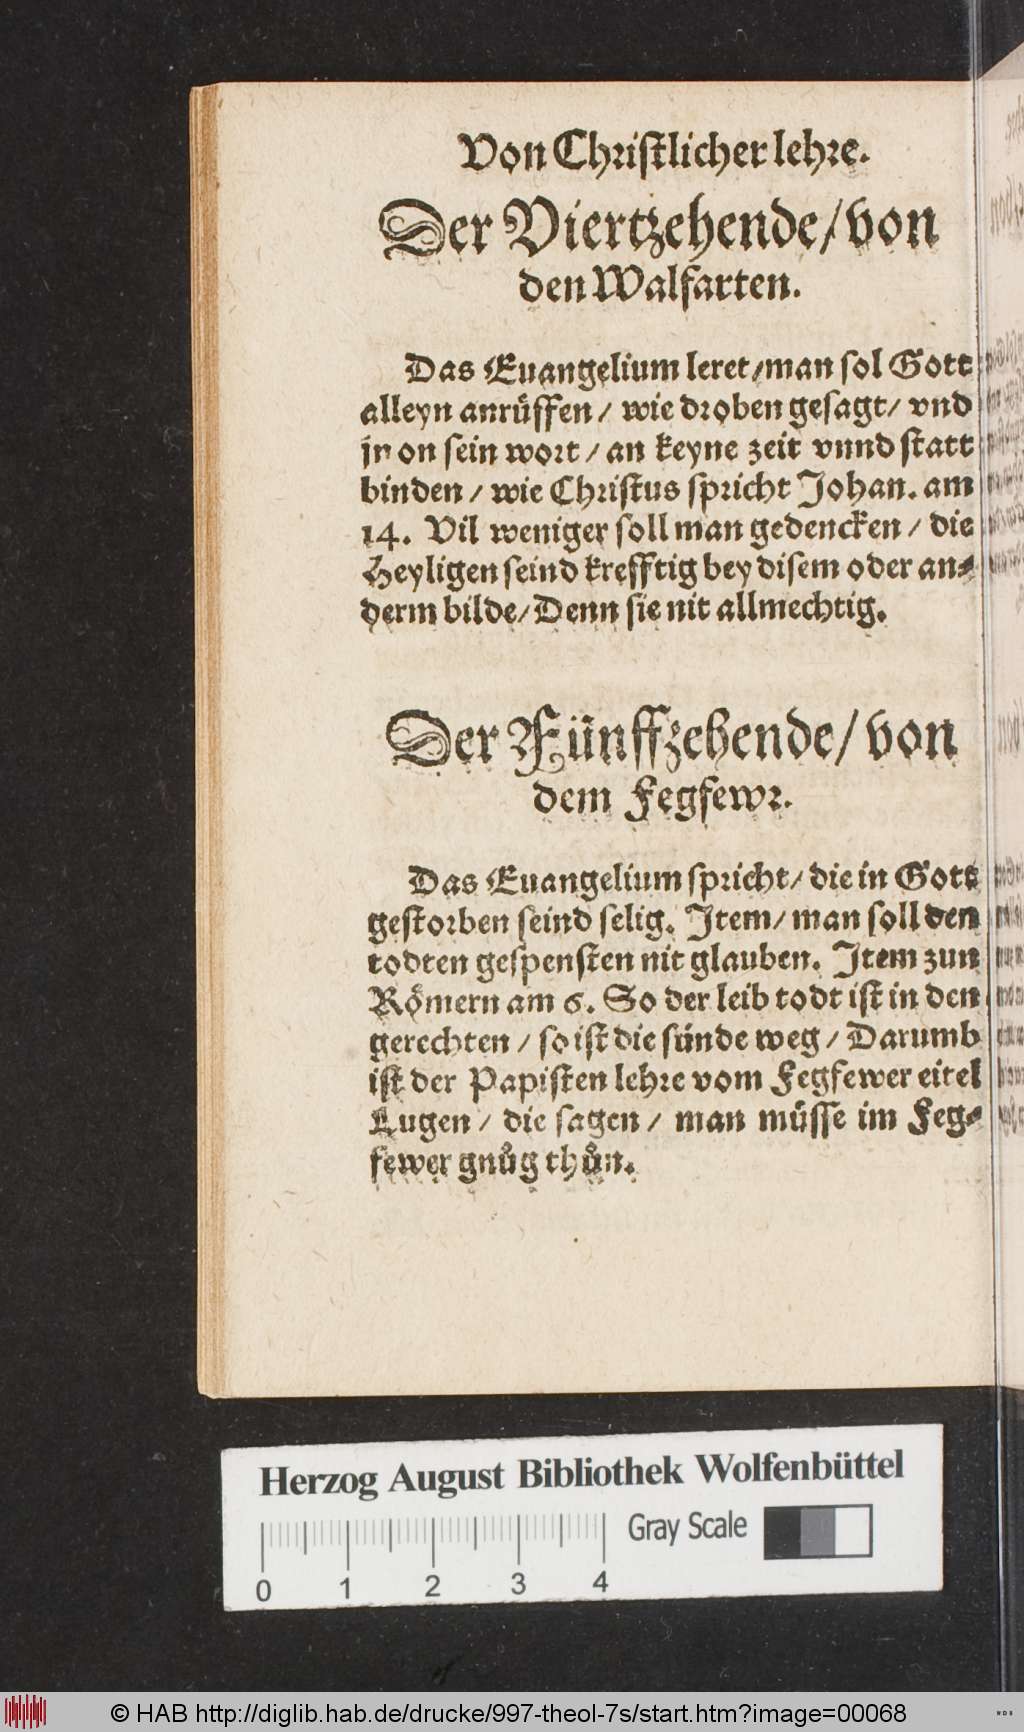 Von Christlicher lehre.
Der Viertzehende/ von
den Walfarten.
Das Euangelium leret/ man sol Gott
alleyn anrůffen/ wie droben gesagt/ vnd
in on sein wort/ an keyne zeit vnnd statt
binden/ wie Christus spricht Johan. am
14. Vil weniger soll man gedencken/ die
Heyligen seind krefftig bey disem oder an-
derm bilde/ Denn sie nit allmechtig.
Der Fünffzehende/ von
dem Fegfewr.
Das Euangelium spricht/ die in Gott
gestorben seind selig. Item/ man soll den
todten gespensten nit glauben. Item zun
Römern am 6. So der leib todt ist in den
gerechten/ so ist die sünde weg/ Darumb
ist der Papisten lehre vom Fegfewer eitel
Lugen/ die sagen/ man müsse im Feg-
fewer gnůg thůn.
Herzog August Bibliothek Wolfenbüttel
Gray Scale
0 1 2 3 4
© HAB http://diglib.hab.de/drucke/997-theol-7s/start.htm?image=00068